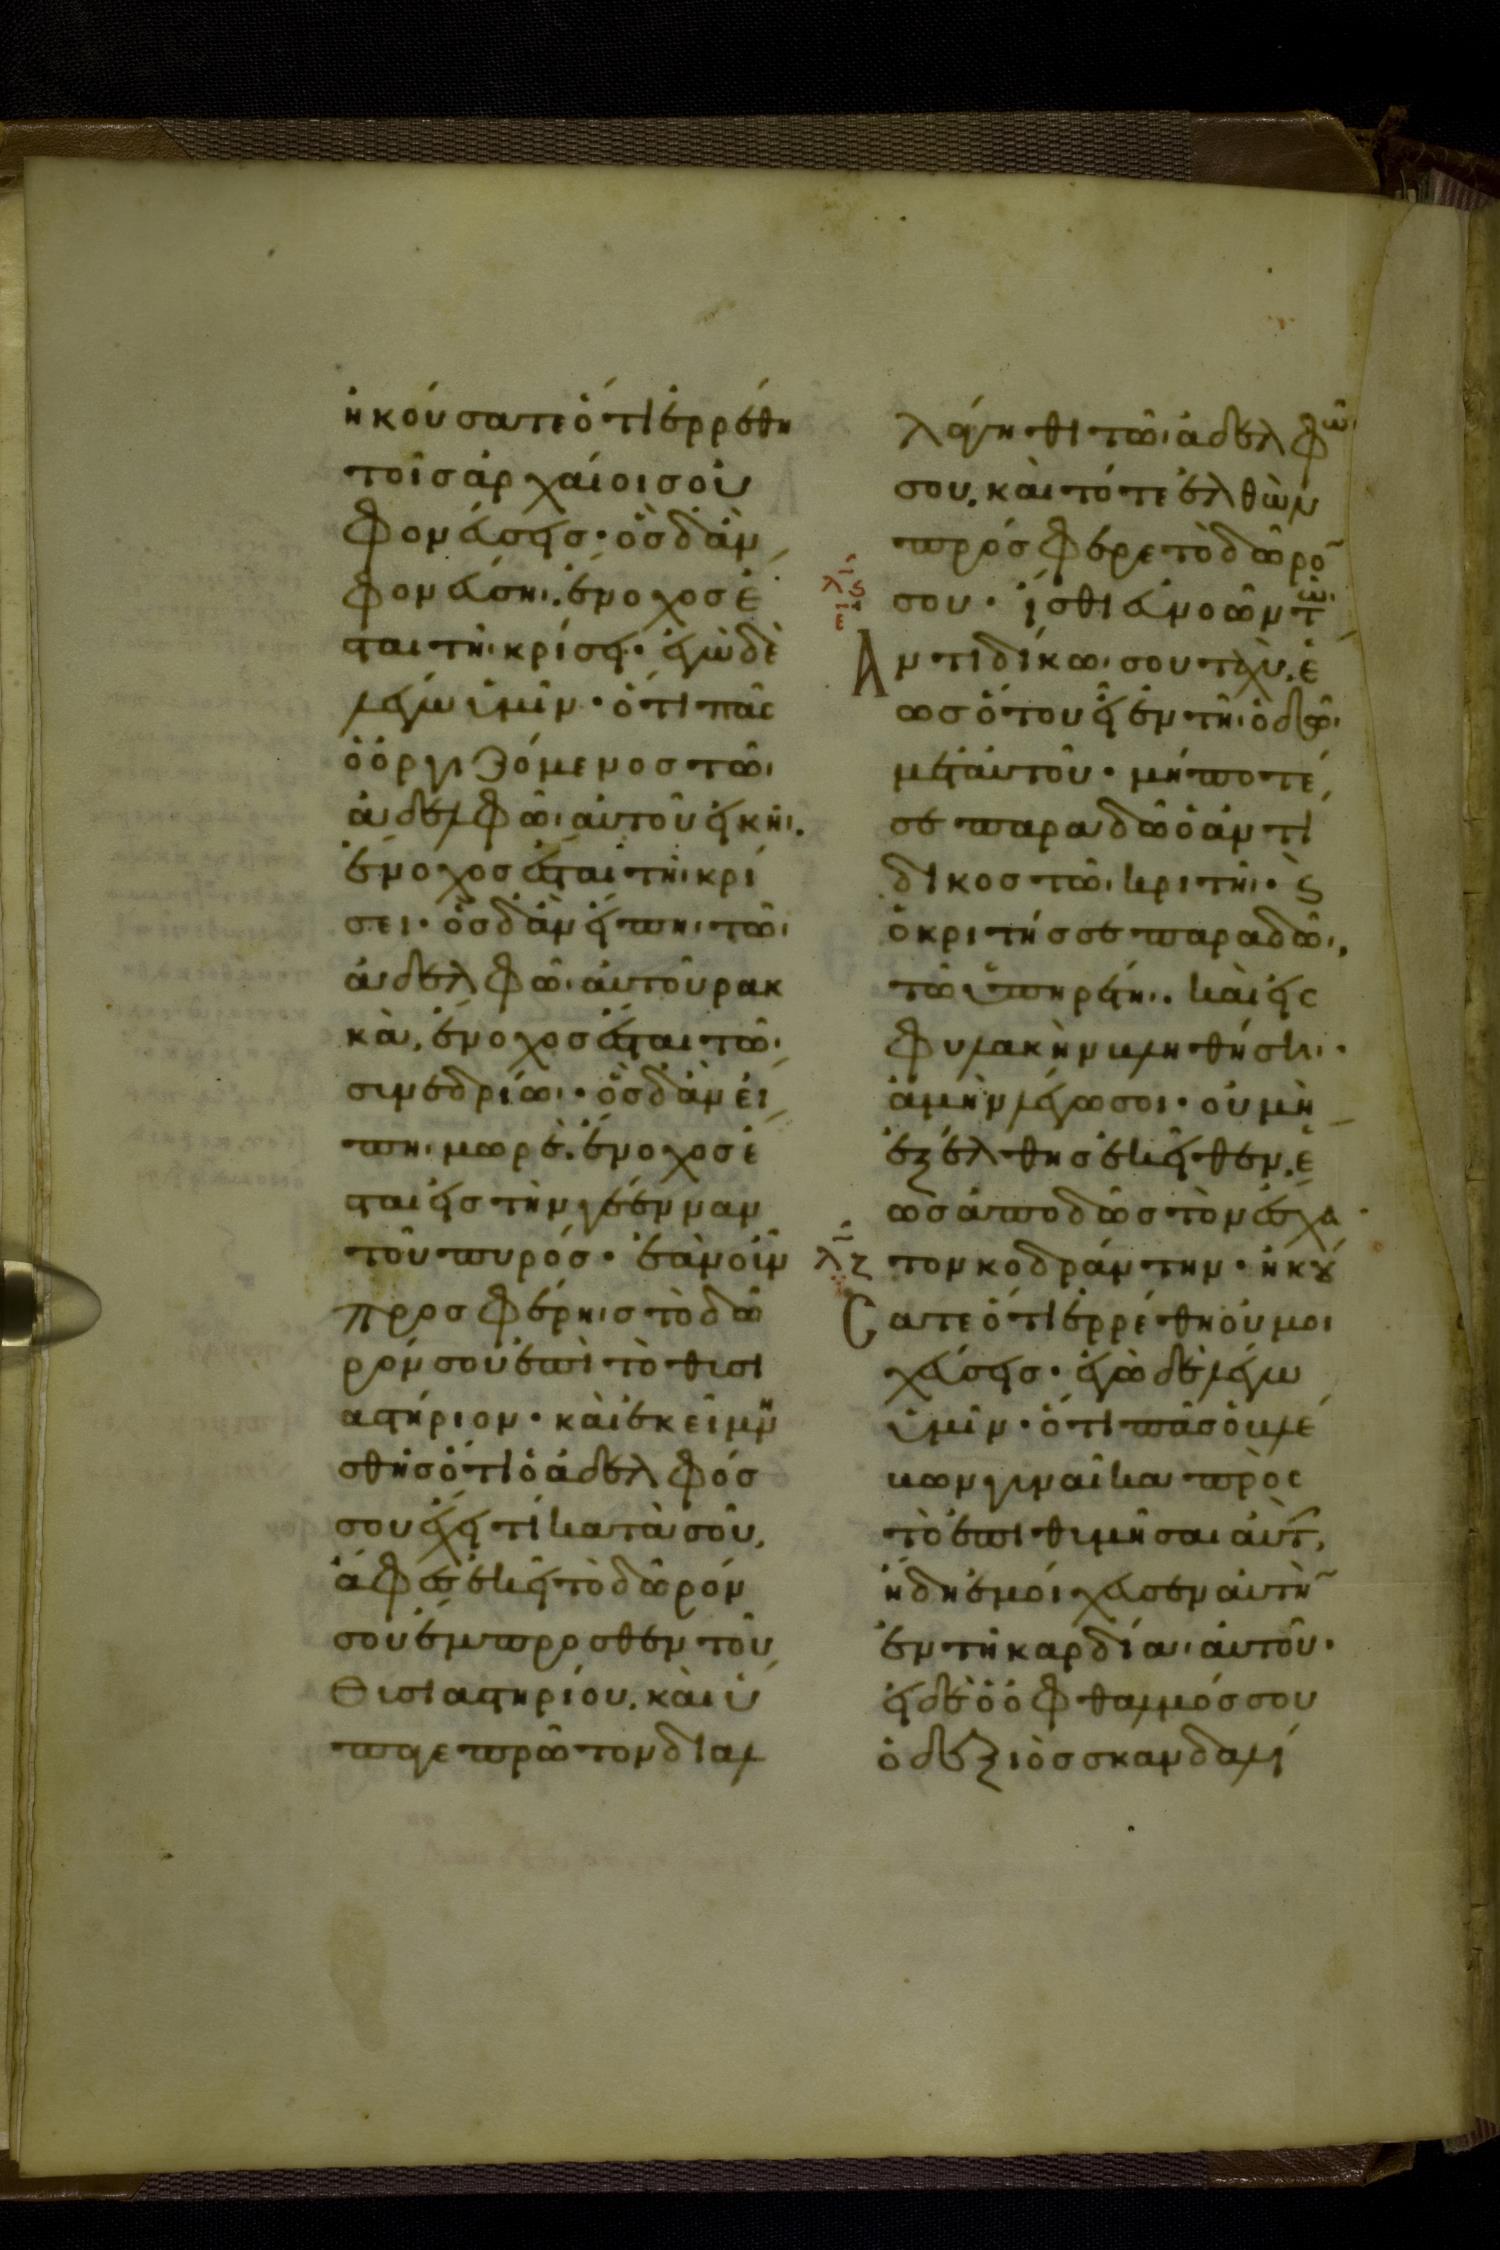 ἠκούσατε ὅτι ἐρρέθη
τοῖς ἀρχαίοις οὐ
φονεύσεις · ὃς δ' ἂν
φονεύσηι, ἔνοχος ἔ
σται τῆι κρίσει · ἐγὼ δὲ
λέγω ὑμῖν · ὅτι πᾶς
ὁ ὀργιζόμενος τῶι
ἀδελφῶι αὐτοῦ εἰκῆι,
ἔνοχος ἔσται τῆι κρί
σει · ὃς δ' ἂν εἴπηι τῶι
ἀδελφῶι αὐτοῦ ρακ
κὰ, ἔνοχος ἔσται τῶι
συνεδρίωι · ὃς δ' ἂν εἴ
πηι μωρὲ, ἔνοχος ἔ
σται εἰς τὴν γέενναν
τοῦ πυρός · ἐὰν οὖν
προσφέρηις τὸ δῶ
ρόν σου ἐπὶ τὸ θυσι
αστήριον · καὶ ἐκεῖ μνη
σθῆις ὅτι ὁ ἀδελφός
σου ἔχει τι κατὰ σοῦ,
ἄφες ἐκεῖ τὸ δῶρόν
σου ἔμπροσθεν τοῦ
θυσιαστηρίου, καὶ ὕ
παγε πρῶτον διαλ
λάγηθι τῶι ἀδελφῶι
σου, καὶ τότε ἐλθὼν
πρόσφερε τὸ δῶρο̄
λ̅ς̅
ε̅
σου · ἴσθι εὐνοῶν τῶι
Ἀντιδίκωι σου ταχὺ, ἕ
ως ὅτου εἶ ἐν τῆι ὁδῶι
μετ' αὐτοῦ · μήποτέ
σε παραδῶ ὁ ἀντί
δικος τῶι κριτῆι · ϛ̀
ὁ κριτής σε παραδῶι,
τῶ ὑπηρέτηι, καὶ εἰς
φυλακὴν βληθήσηι ·
ἀμὴν λέγω σοι · οὐ μὴ
ἐξέλθηις ἐκεῖθεν, ἕ
ως ἀποδῶς τὸν ἔσχα
λ̅ζ̅
τον κοδράντην · ἠκού
Σατε ὅτι ἐρρέθη οὐ μοι
χεύσεις · ἐγὼ δὲ λέγω
ὑμῖν · ὅτι πᾶς ὁ βλέ
πων γυναῖκα πρὸς
τὸ ἐπιθυμῆσαι αὐτ͂,
ἤδη ἐμοίχευσεν αὐτὴ̄
ἐν τῆ καρδίαι αὐτοῦ ·
εἰ δὲ ὁ ὀφθαλμός σου
ὁ δεξιὸς σκανδαλί